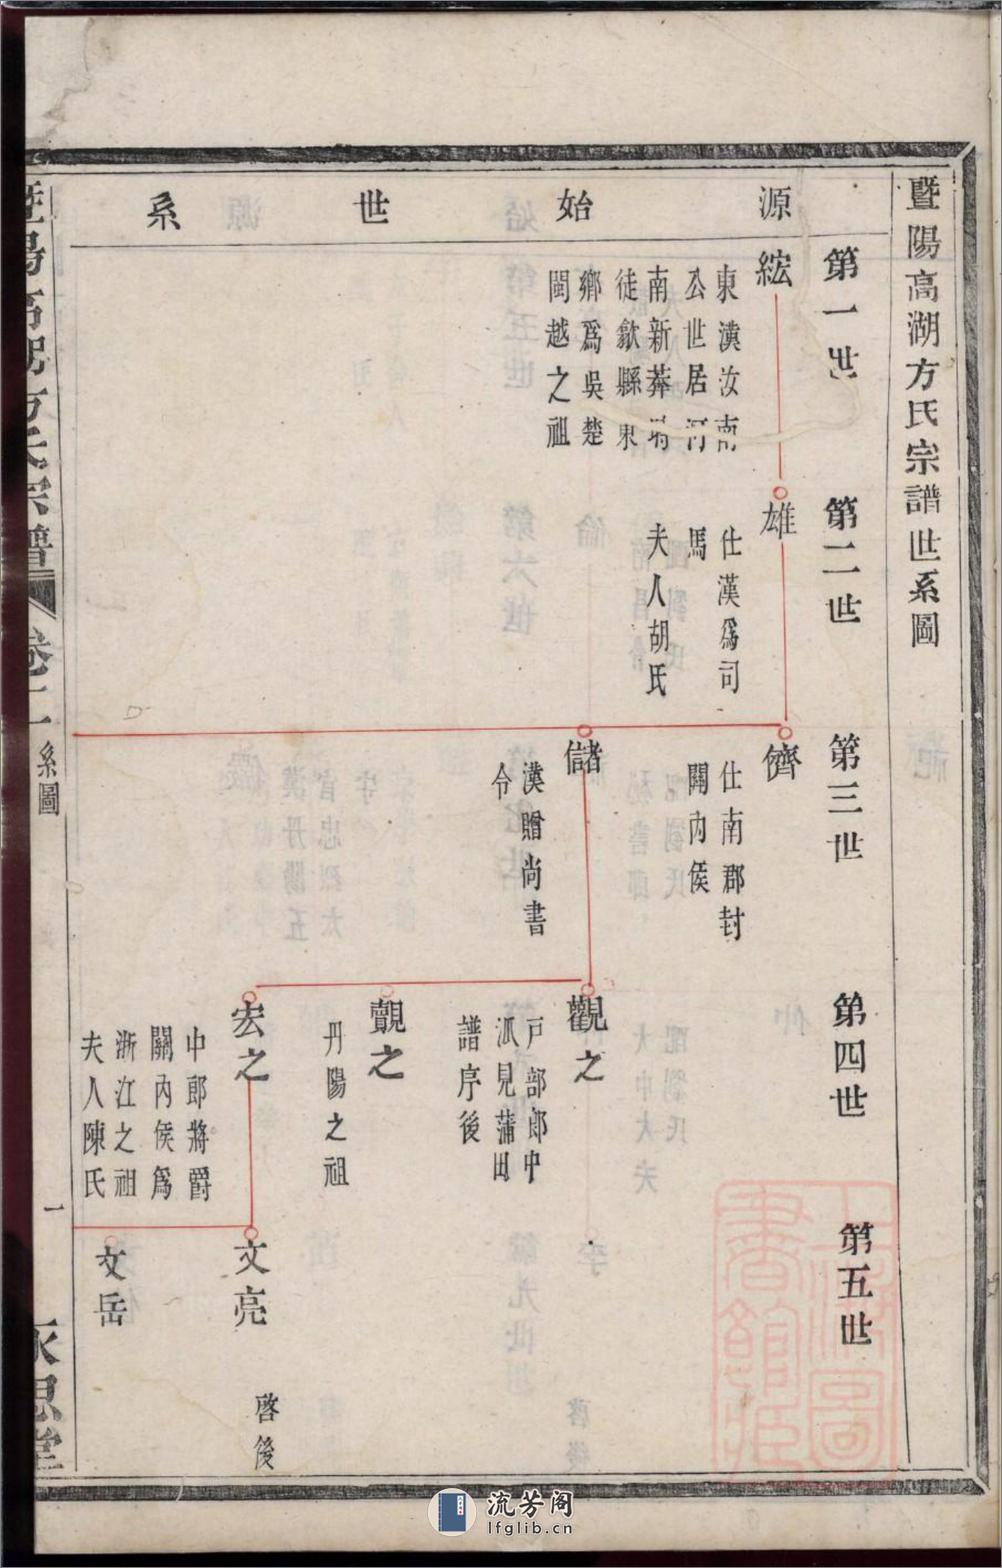 暨陽高湖方氏宗譜世系圖
源始世系
第一世
紘
東漢汝南
公世居河
南新莽時
徒歙縣東
鄉爲吳楚
閩越之祖
第二世
雄
仕漢爲司
馬
夫人胡氏
第三世
儕
仕南郡封
關內侯
儲
漢贈尚書
令
第四世
觀之
戸部郎中
派見蒲田
譜序後
覿之
丹陽之祖
宏之
中郎將爵
關內侯爲
浙江之祖
夫人陳氏
第五世
文亮
啓後
文岳
暨陽高湖方氏宗譜
卷二
系圖
一
永思堂
上海圖書館藏
流芳阁
lfglib.cn